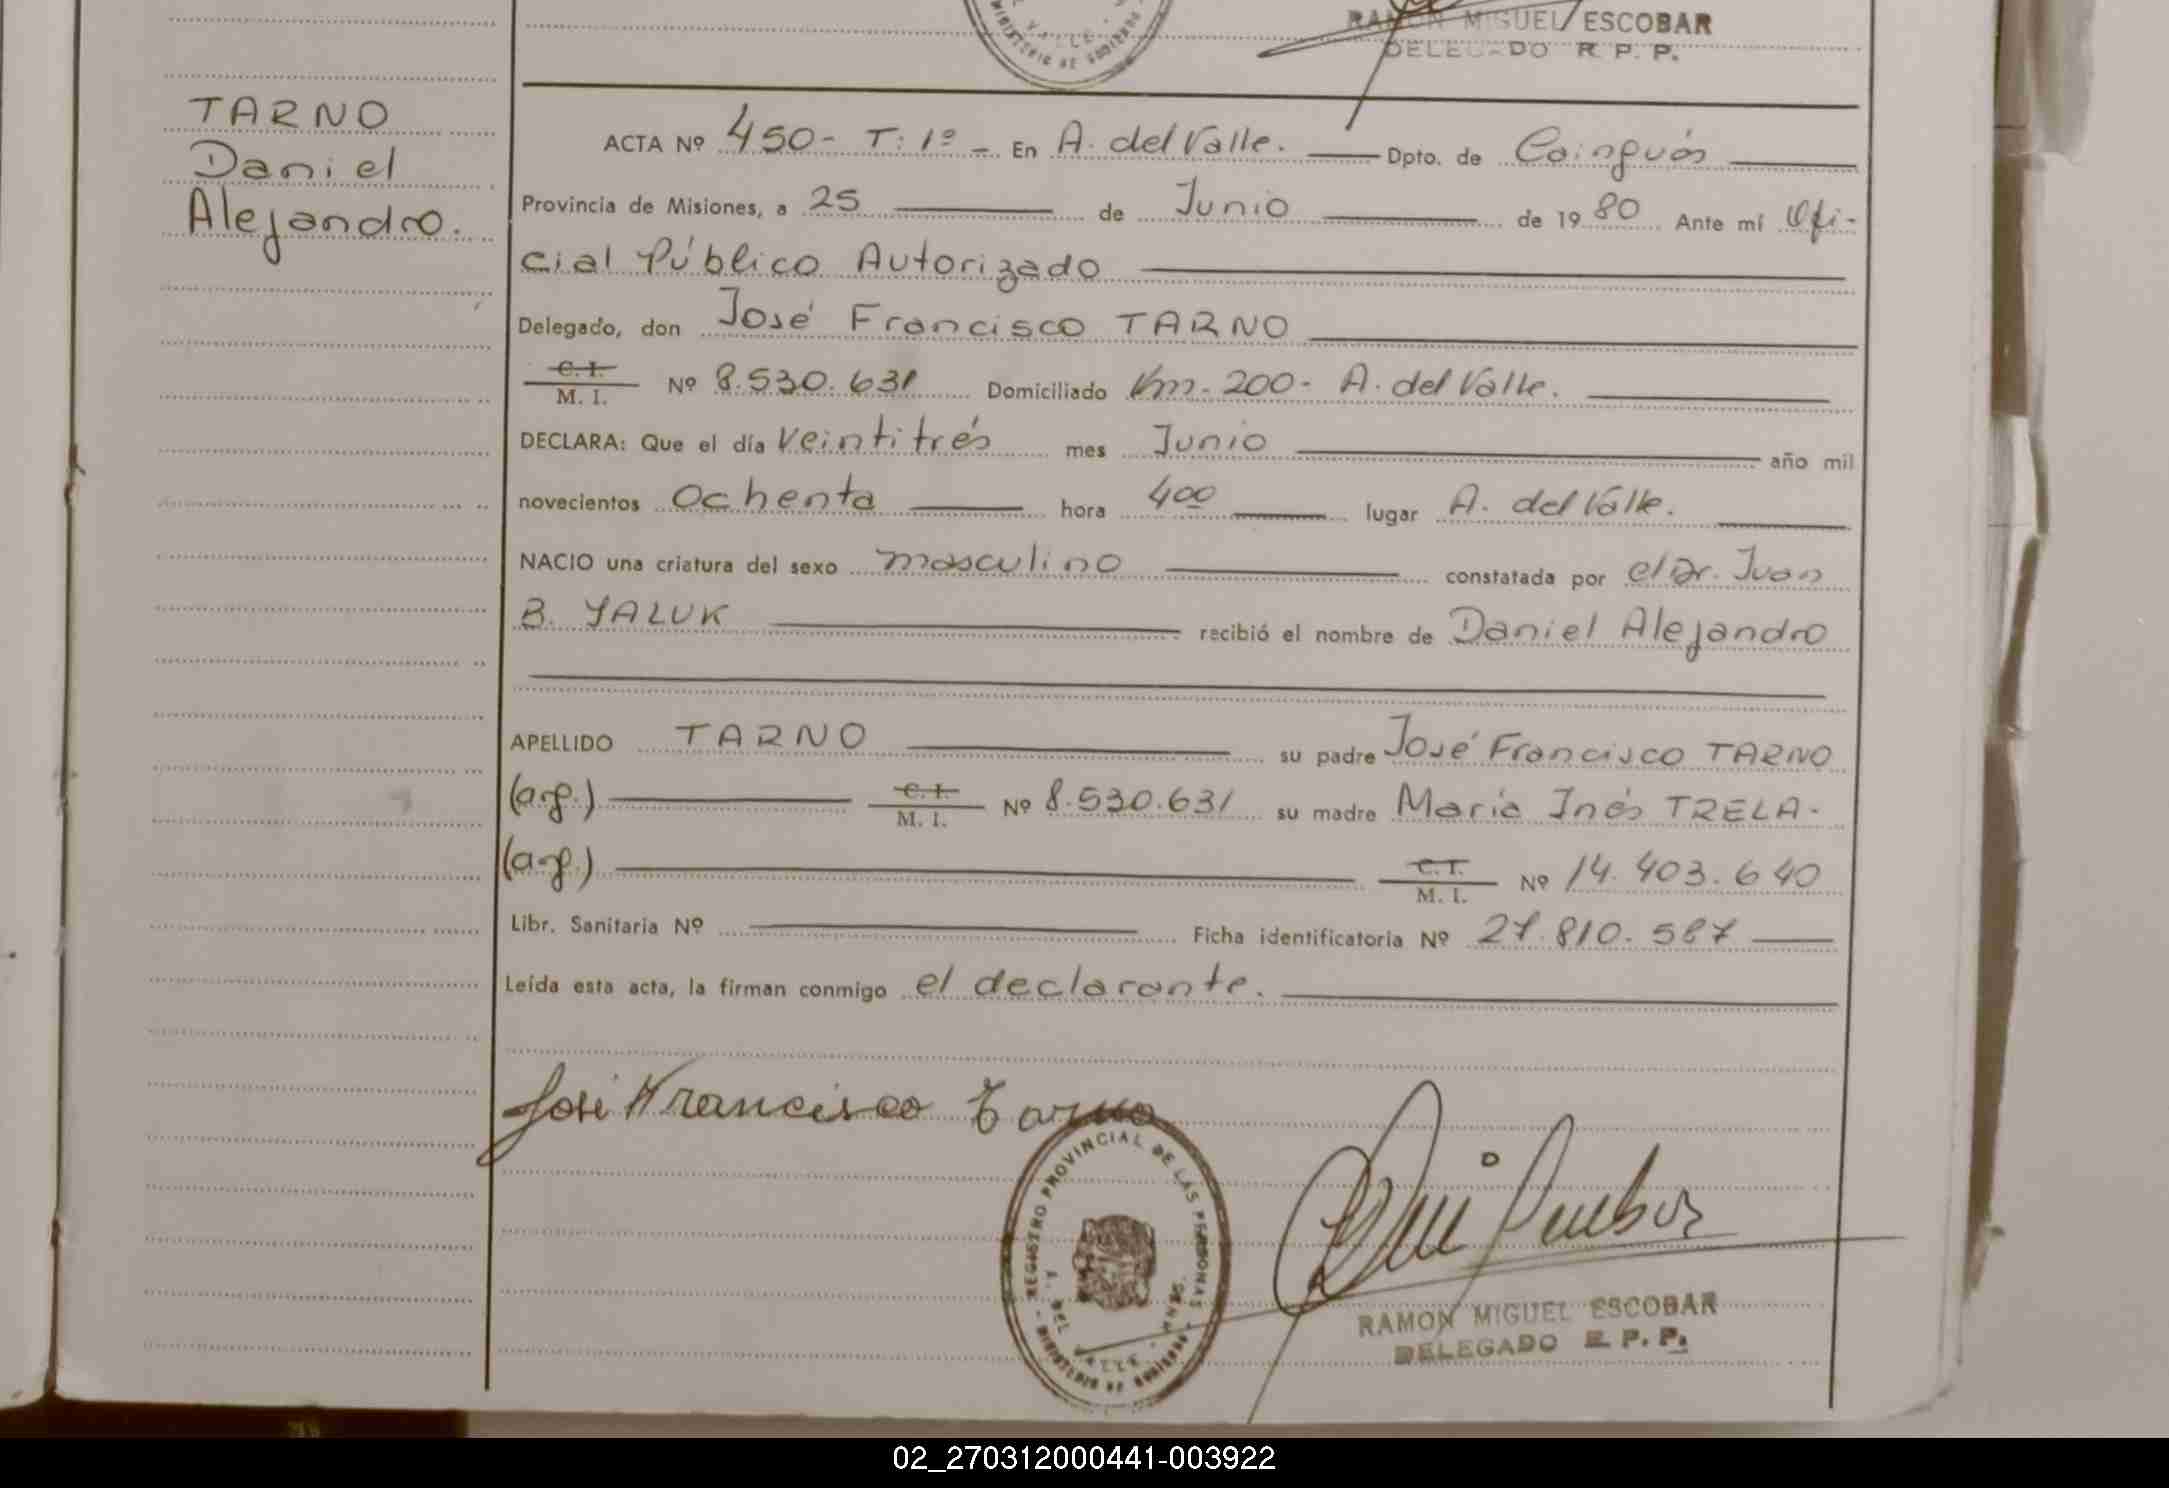 RAMON MIGUEL ESCOBAR
DELEGADO R. P. P.
TARNO
Daniel
Alejandro.
ACTA Nº 450- T: 1º - En A. del Valle. Dpto. de Cainguás
Provincia de Misiones, a 25 de Junio de 19 80 Ante mí Ofi-
cial Público Autorizado
Delegado, don José Francisco TARNO
C. I.
M. I. Nº 8.530.631 Domiciliado Km. 200- A. del Valle.
DECLARA: Que el día veintitrés mes Junio año mil
novecientos ochenta hora 400 lugar A. del Valle.
NACIO una criatura del sexo masculino constatada por el Dr. Juan
B. YALUK recibió el nombre de Daniel Alejandro
APELLIDO TARNO su padre José Francisco TARNO
(arg.) C. I.
M. I. Nº 8.530.631 su madre María Inés TRELA.
(arg.) C. I.
M. I. Nº 14.403.640
Libr. Sanitaria Nº Ficha identificatoria Nº 27.810.587
Leída esta acta, la firman conmigo el declarante.
José Francisco Tarno
REGISTRO PROVINCIAL DE LAS PERSONAS
A. DEL VALLE
MINISTERIO DE GOBIERNO
RAMON MIGUEL ESCOBAR
DELEGADO R. P. P.
02_270312000441-003922